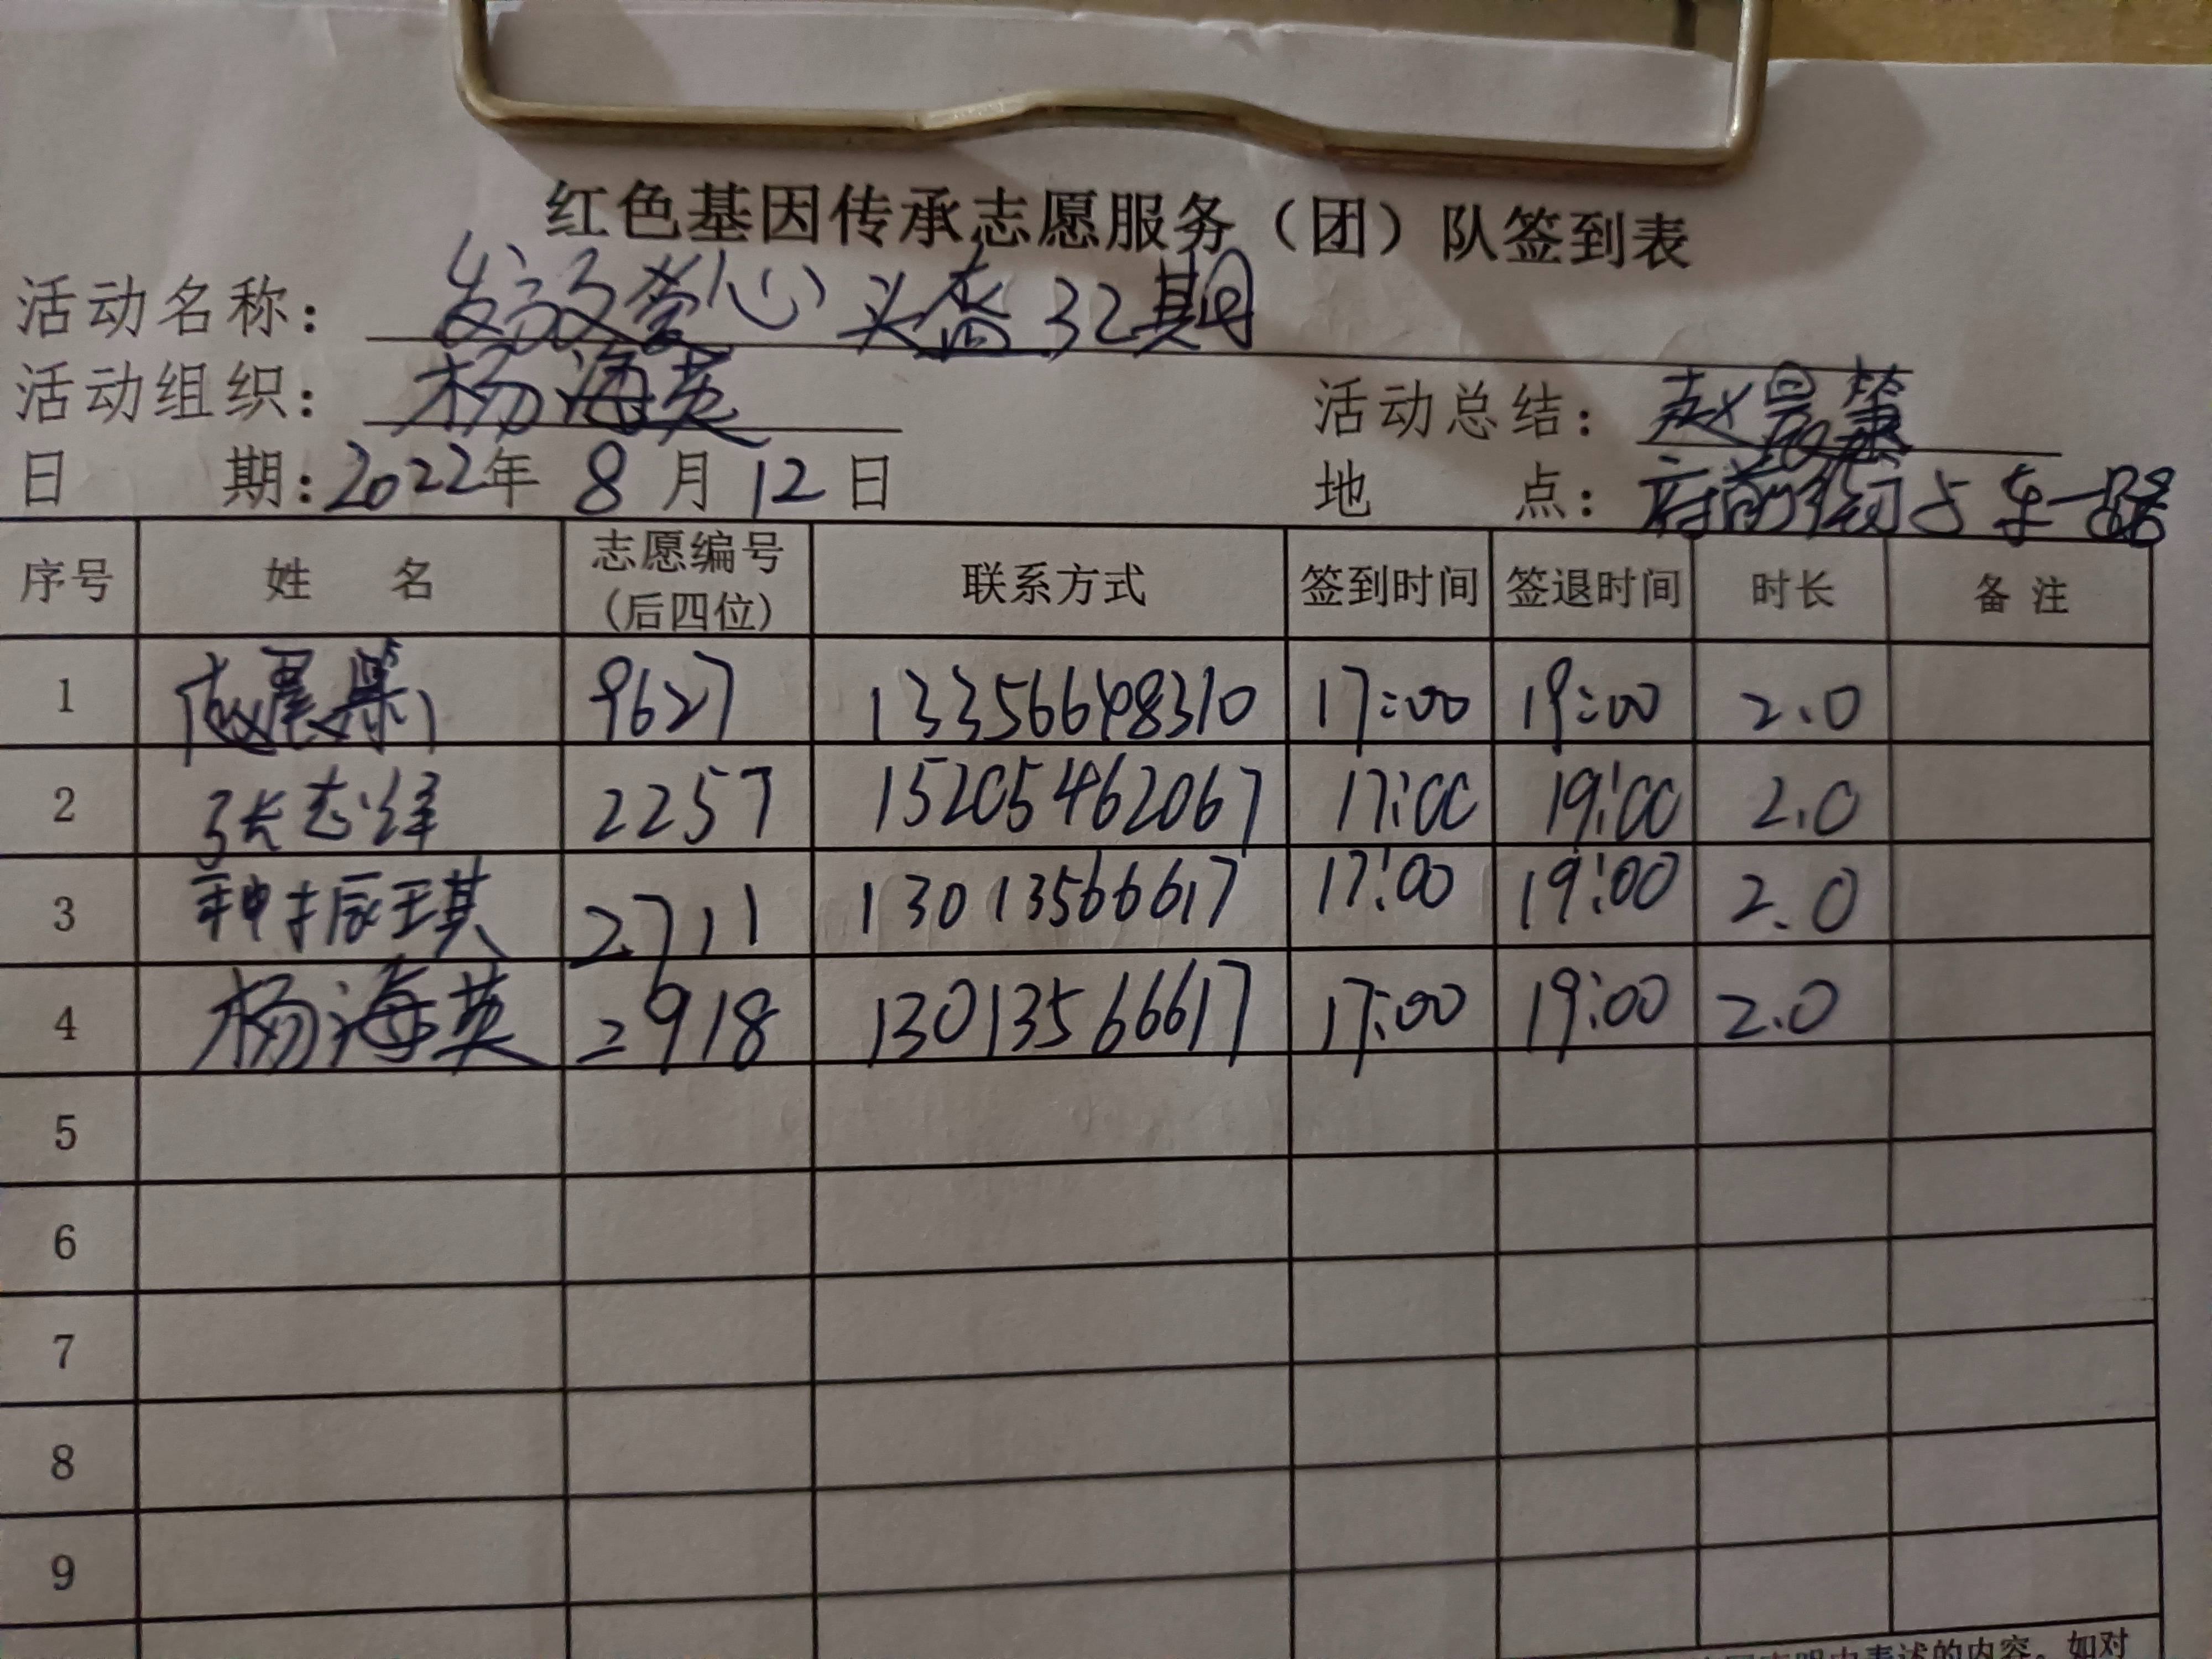 红色基因传承志愿服务（团）队签到表
活动名称： 发放爱心头盔32期
活动组织： 杨海英 活动总结： 赵晨
日 期：2022年 8 月 12 日 地 点： 府前街与东一路
序号 姓 名 志愿编号（后四位） 联系方式 签到时间 签退时间 时长 备 注
1 9627 13356648310 17:00 19:00 2.0
2 张志 2257 15205462067 17:00 19:00 2.0
3 种振琪 2711 13013566617 17:00 19:00 2.0
4 杨海英 2918 13013566617 17:00 19:00 2.0
5
6
7
8
9
表述的内容。如对